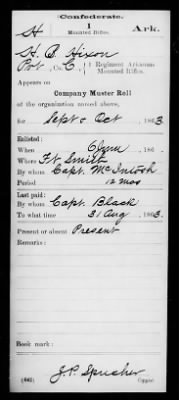 Confederate.
H 1 Ark.
Mounted Rifles.
H. B. Hixon
Pvt, Co. C, 1 Regiment Arkansas
Mounted Rifles.
Appears on
Company Muster Roll
of the organization named above,
for Sept & Oct, 1863
Enlisted:
When 6 June, 186 .
Where Ft Smith
By whom Capt. McIntosh
Period 12 mos
Last paid:
By whom Capt. Black
To what time 31 Aug, 1863.
Present or absent Present
Remarks:
Book mark:
(642) Copyist.